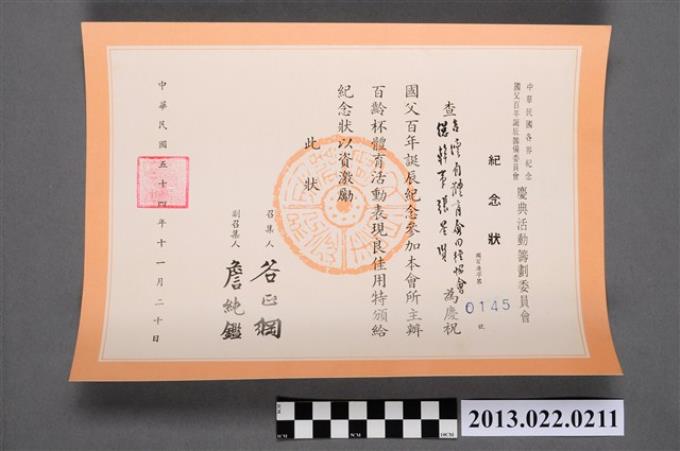 中華民國各界紀念
國父百年誕辰籌備委員會
慶典活動籌劃委員會
紀念狀
0145
號
查
為慶祝
國父百年誕辰紀念參加本會所主辦
百齡杯體育活動表現良佳用特頒給
紀念狀以資激勵
此狀
召集人 谷正綱
副召集人 詹純鑑
中華民國五十四年十一月二十日
5CM
10CM
2013.022.0211